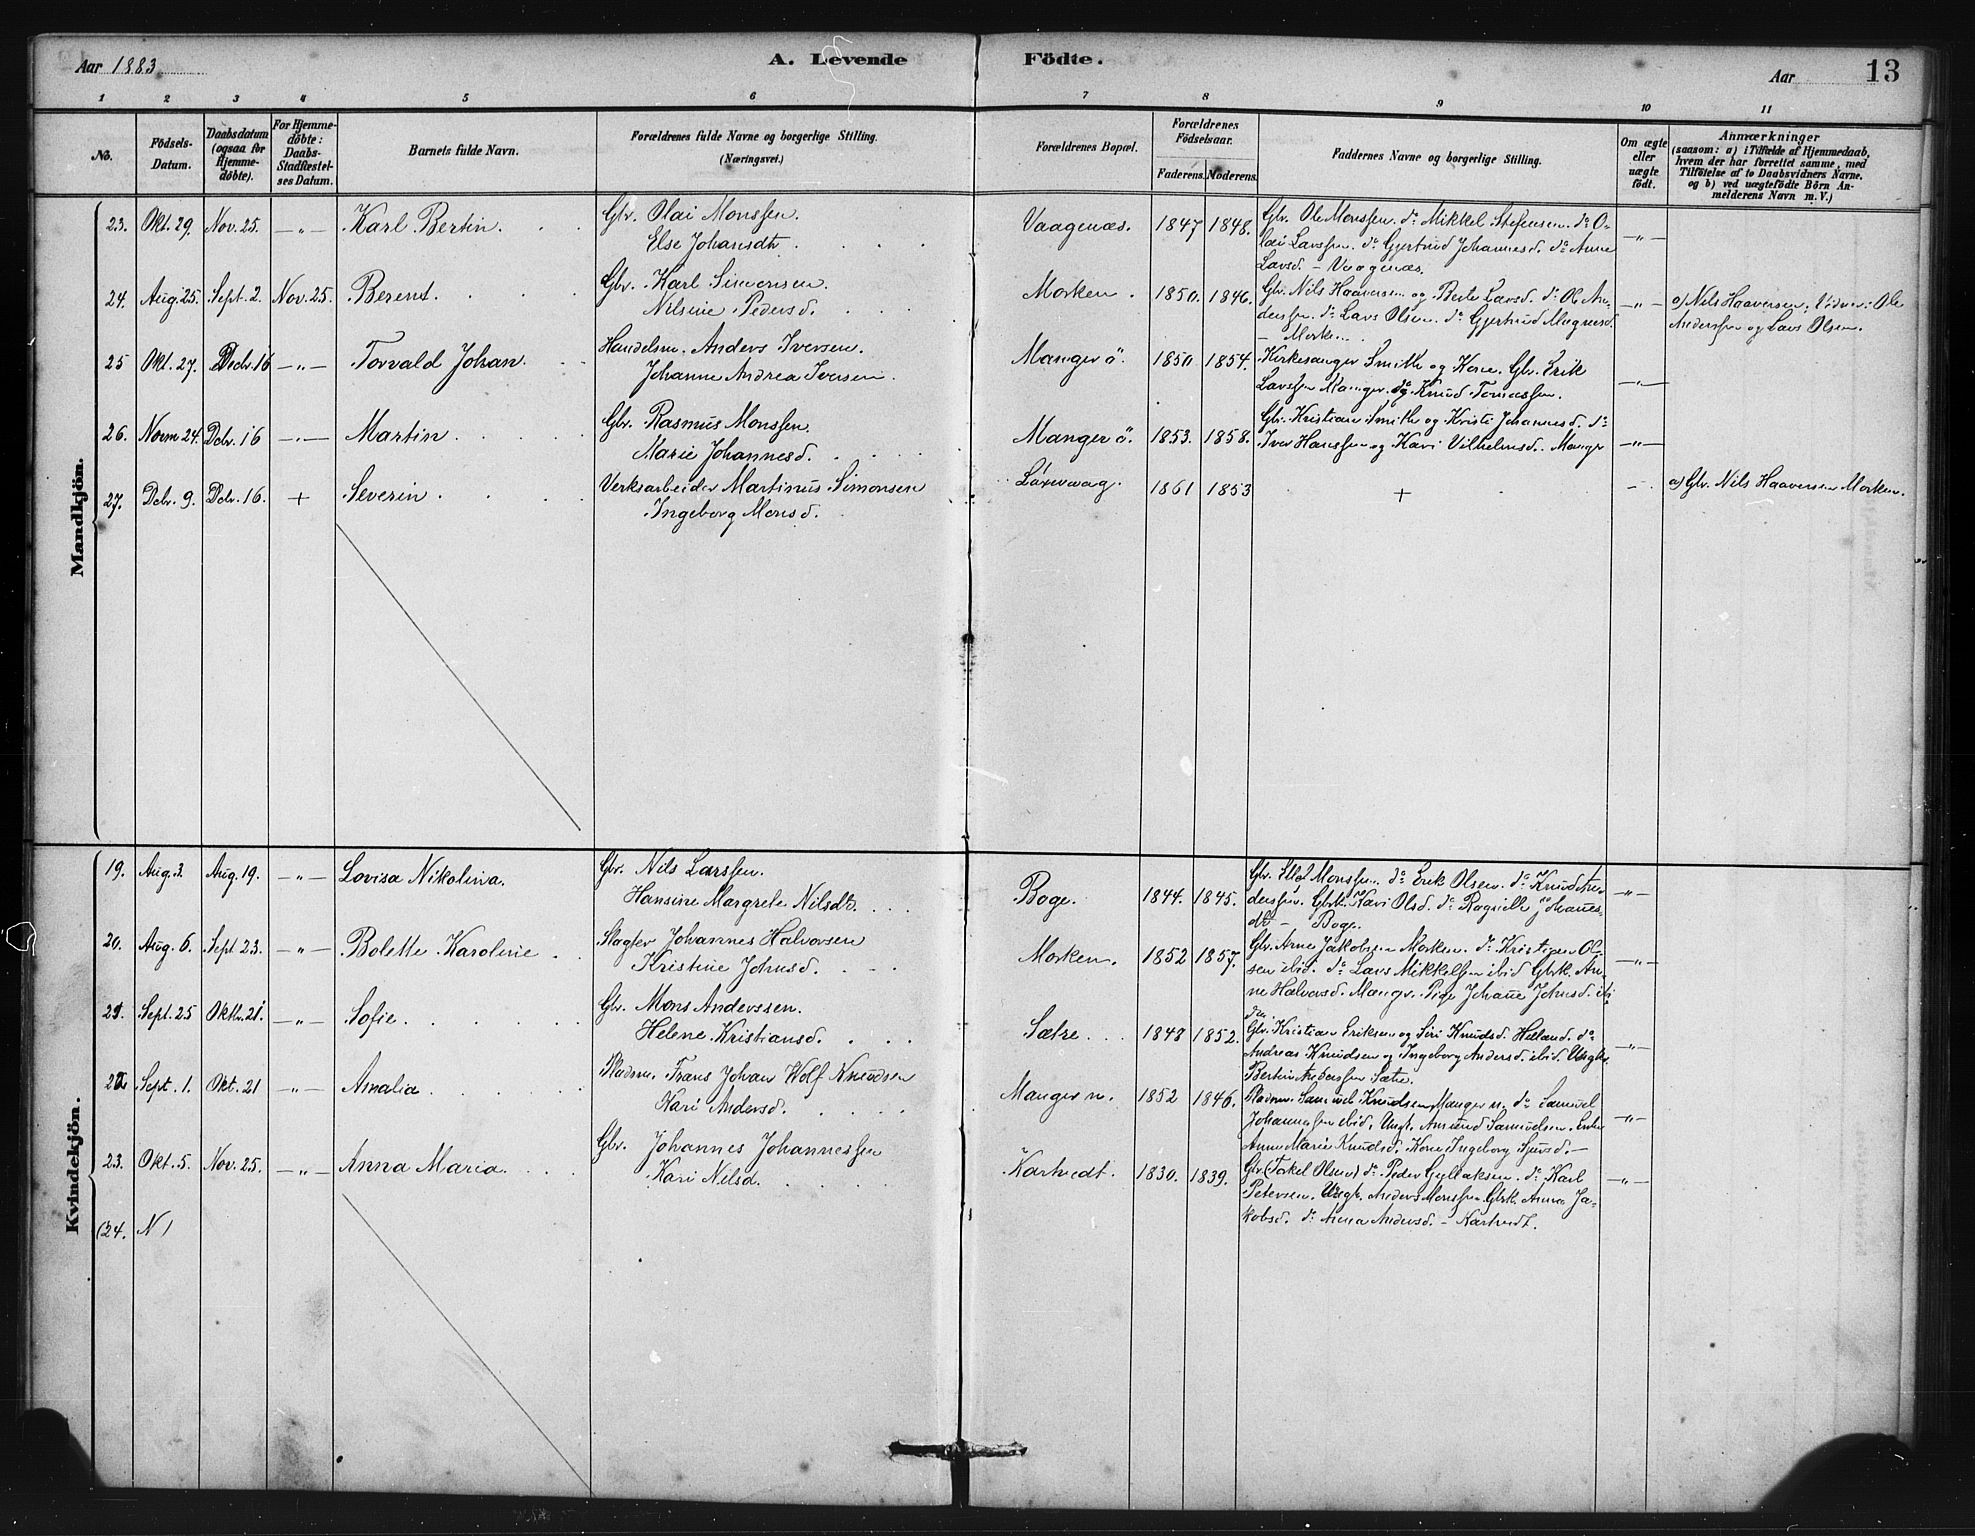 Aar 1883
A. Levende Födte.
Aar
13
1 2 3 4 5 6 7 8 9 10 11
No.
Födsels-Datum.
Daabsdatum (ogsaa for Hjemme-döbte).
For Hjemme-döbte: Daabs-Stadfæstel-ses Datum.
Barnets fulde Navn.
Forældrenes fulde Navne og borgerlige Stilling. (Næringsvei.)
Forældrenes Bopæl.
Forældrenes Födselsaar.
Faderens. Moderens.
Faddernes Navne og borgerlige Stilling.
Om ægte eller uægte födt.
Anmærkninger
(saasom: a) i Tilfælde af Hjemmedaab, hvem der har forrettet samme, med Tilföielse af to Daabsvidners Navne, og b) ved uægtefödte Börn An-melderens Navn m. V.)
Mandkjön.
23. Okt. 29. Nov. 25. —„— Karl Bertin. Gbr. Olai Monssen. Vaagenæs. 1847 1848. Gbr. Ole Monssen. do Mikkel Stefensen. do O-
Else Johansdtr. lai Larssen. do Gjertrud Johannesd. do Anne —„—
Larsd. – Vaagenæs.
24. Aug. 25. Sept. 2. Nov. 25. Berent. Gbr. Karl Simonsen. Morken. 1850. 1846. Gbr. Nils Haaversen og Berte Larsd. do Ole An- —„— a) Nils Haaversen, Vidner: Ole
Nilsine Pedersd. derssen. do Lars Olsen. do Gjertrud Magnusd. Anderssen og Lars Olsen.
– Morken.
25 Okt. 27. Decbr. 16 —„— Torvald Johan. Handelsm. Anders Iversen. Manger ö. 1850 1854. Kirkesanger Smith og Kone. Gbr. Erik
Johanne Andrea Iversen. Larssen Manger. do Knud Tomassen. —„—
26. Novm 24. Dcbr. 16 —„— Martin. Gbr. Rasmus Monssen. Manger ö. 1853. 1858. Gbr. Kristian Smith og Kristi Johannesd. do
Marie Johannesd. Iver Hanssen og Kari Vilhelmsd. Manger —„—
27. Dcbr. 9. Dcbr. 16. + Severin. Verksarbeider Martinus Simonsen 1861 1853 + a) Gbr. Nils Haaversen Morken.
Ingeborg Monsd.
Kvindekjön.
19. Aug. 3. Aug. 19. —„— Lovisa Nikolina. Gbr. Nils Larssen. Boge. 1844. 1845. Gbr. Monssen. do Erik Olsen. do Knud An- —„—
Hansine Margrete Nilsdtr. derssen. Gbrk. Kari Olsd. do Johannes-
dtr – Boge.
20. Aug. 6. Sept 23. —„— Bolette Karoline. Slagter Johannes Halvorsen Morken. 1852 1857. Gbr. Arne Jakobsen Morken. do Kristian Ol-
Kristine Johnsd. sen ibid. do Lars Mikkelsen ibid Gbrk. An- —„—
ne Halvorsd. Mangr. Pige Johañe Johnsd. ibi
dem
21. Sept. 25 Oktbr. 21. —„— Sofie. Gbr. Mons Anderssen. Sætre. 1848 1852. Gbr. Kristian Eriksen og Siri Knudsd. Helland. do
Helene Kristiansd. Andreas Knudsen og Ingeborg Andersd. ibid. Ungk. —„—
Bertin Anderssen Sætre.
22 Sept. 1. Okt. 21 —„— Amalia. Pladsm. Frans Johan Wolf Knudsen Manger n. 1852 1846. Pladsm. Samuel Knudsen Manger n. do Samuel
Kari Andersd. Johannessen ibid. Ungk. Amund Samuelsen. Enke —„—
Anne Marie Knudsd. Kone Ingeborg Sjursd. –
23. Okt. 5. Nov. 25. —„— Anna Maria. Gbr. Johannes Johannessen Kartvedt. 1830. 1839. Gbr. (Torkel Olsen) do Peder Gullaksen. do Karl —„—
Kari Nilsd. Petersen. Ungk. Anders Monssen. Gbrk. Anna Ja-
kobsd. do Anna Andersd. – Kartvedt.
(24. N)